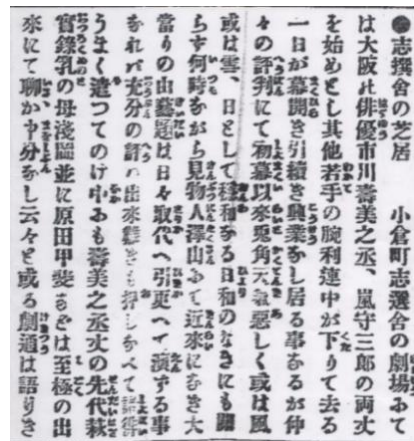 ●志撰舎の芝居　小倉町志選舎の劇塲ふて
は大阪の俳優市川壽美之丞、嵐守三郎の両丈
を始めとし其他若手の腕利連中が下りて去る
一日が幕開き引續き興業をし居る事なるが仲
々の評判にて初幕以來兎角天氣惡しく或は風
或は雲、日として穏和なる日和のなきにも關
らず何時ながら見物人澤山ふて近來になき大
當りの由藝題は日々取代へ引更へて演ずる事
なれバ充分の評の出來難きも押しなべて技術
うまく遣つてのけ中にも壽美之丞丈の先代萩
實錄乳の母淺岡並に原田甲斐などは至極の出
來にて聊か申分をし云々と或る劇通は語りき